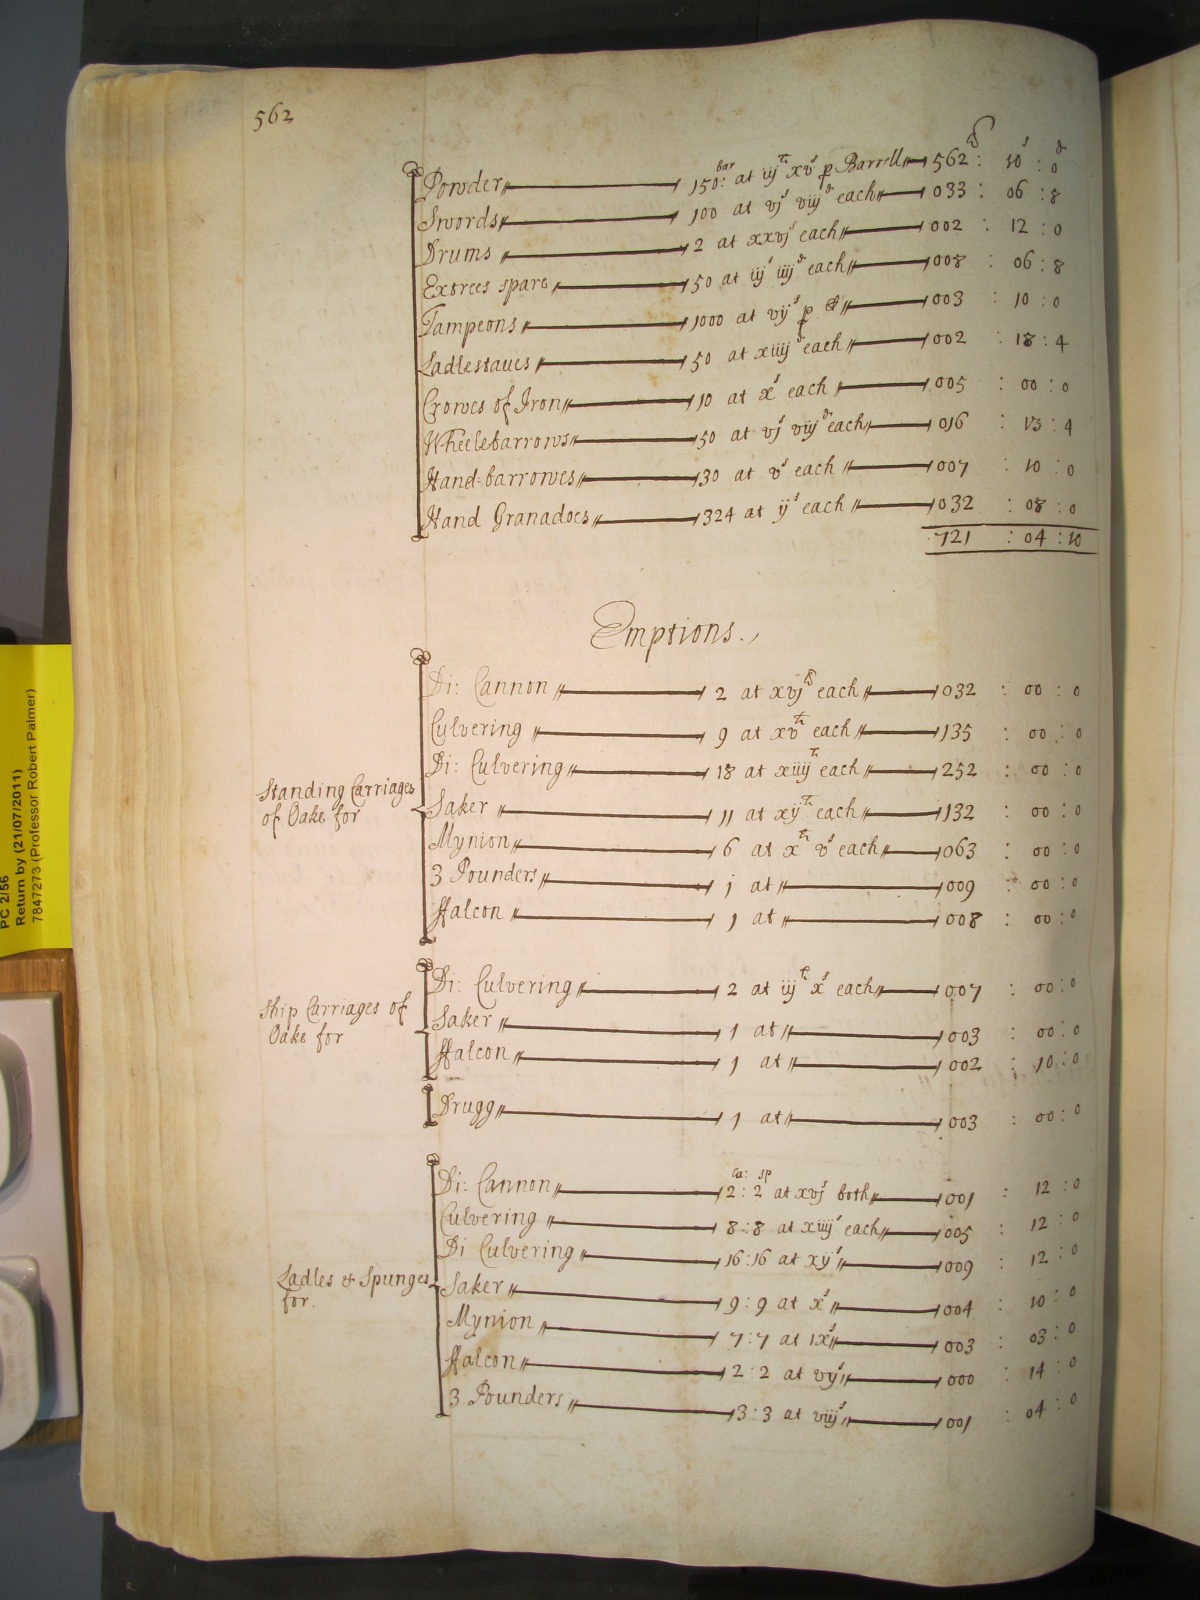 562
li s d
Powder 150 bar: at iij li xv s p Barrell 562 : 10 : 0
Swords 100 at vj s viij d each 033 : 06 : 8
Drums 2 at xxvj s each 002 : 12 : 0
Extrees spare 50 at iij s iiij d each 008 : 06 : 8
Tampeons 1000 at vij s p 003 : 10 : 0
Ladlestaves 50 at xiiij d each 002 : 18 : 4
Crowes of Iron 10 at x s each 005 : 00 : 0
Wheelebarrows 50 at vj s viij d each 016 : 13 : 4
Hand-barrowes 30 at v s each 007 : 10 : 0
Hand Granadoes 324 at ij s each 032 : 08 : 0
721 : 04 : 10
Emptions.
Di: Cannon 2 at xvj li each 032 : 00 : 0
Culvering 9 at xv li each 135 : 00 : 0
Di: Culvering 18 at xiiij li each 252 : 00 : 0
Standing Carriages
of Oake for
Saker 11 at xij li each 132 : 00 : 0
Mynion 6 at x li v s each 063 : 00 : 0
3 Pounders 1 at 009 : 00 : 0
ffalcon 1 at 008 : 00 : 0
Di: Culvering 2 at iij li x s each 007 : 00 : 0
Ship Carriages of
Oake for
Saker 1 at 003 : 00 : 0
ffalcon 1 at 002 : 10 : 0
Drugg 1 at 003 : 00 : 0
la: sp
Di: Cannon 2 : 2 at xvj s both 001 : 12 : 0
Culvering 8 : 8 at xiiij s each 005 : 12 : 0
Di Culvering 16 : 16 at xij s 009 : 12 : 0
Ladles & Spunges
for.
Saker 9 : 9 at x s 004 : 10 : 0
Mynion 7 : 7 at ix s 003 : 03 : 0
ffalcon 2 : 2 at vij s 000 : 14 : 0
3 Pounders 3 : 3 at viij s 001 : 04 : 0
PC 2/56
Return by (21/07/2011)
7847273 (Professor Robert Palmer)